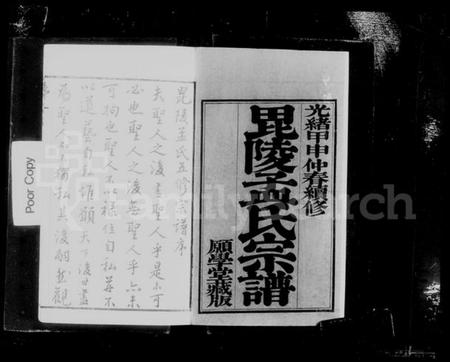 光緒甲申仲春續修
毘陵孟氏宗譜
願學堂藏版
毘陵孟氏五修宗譜序
夫聖人之後盡聖人乎是不可
必也聖人之後無聖人乎亦未
可拘也聖人不以祿位自私并不
以道藝自私惟願天下後世盡
為聖人不獨私其後嗣然觀
Poor Copy
FamilySearch